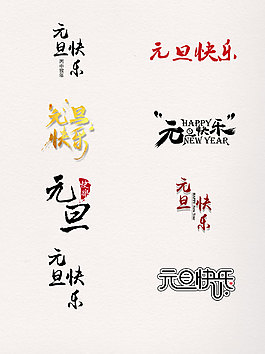 元旦快乐
元旦快乐
元旦快乐
元旦快乐
HAPPY
NEW YEAR
元旦
快乐
元旦快乐
元旦快乐
元旦快乐